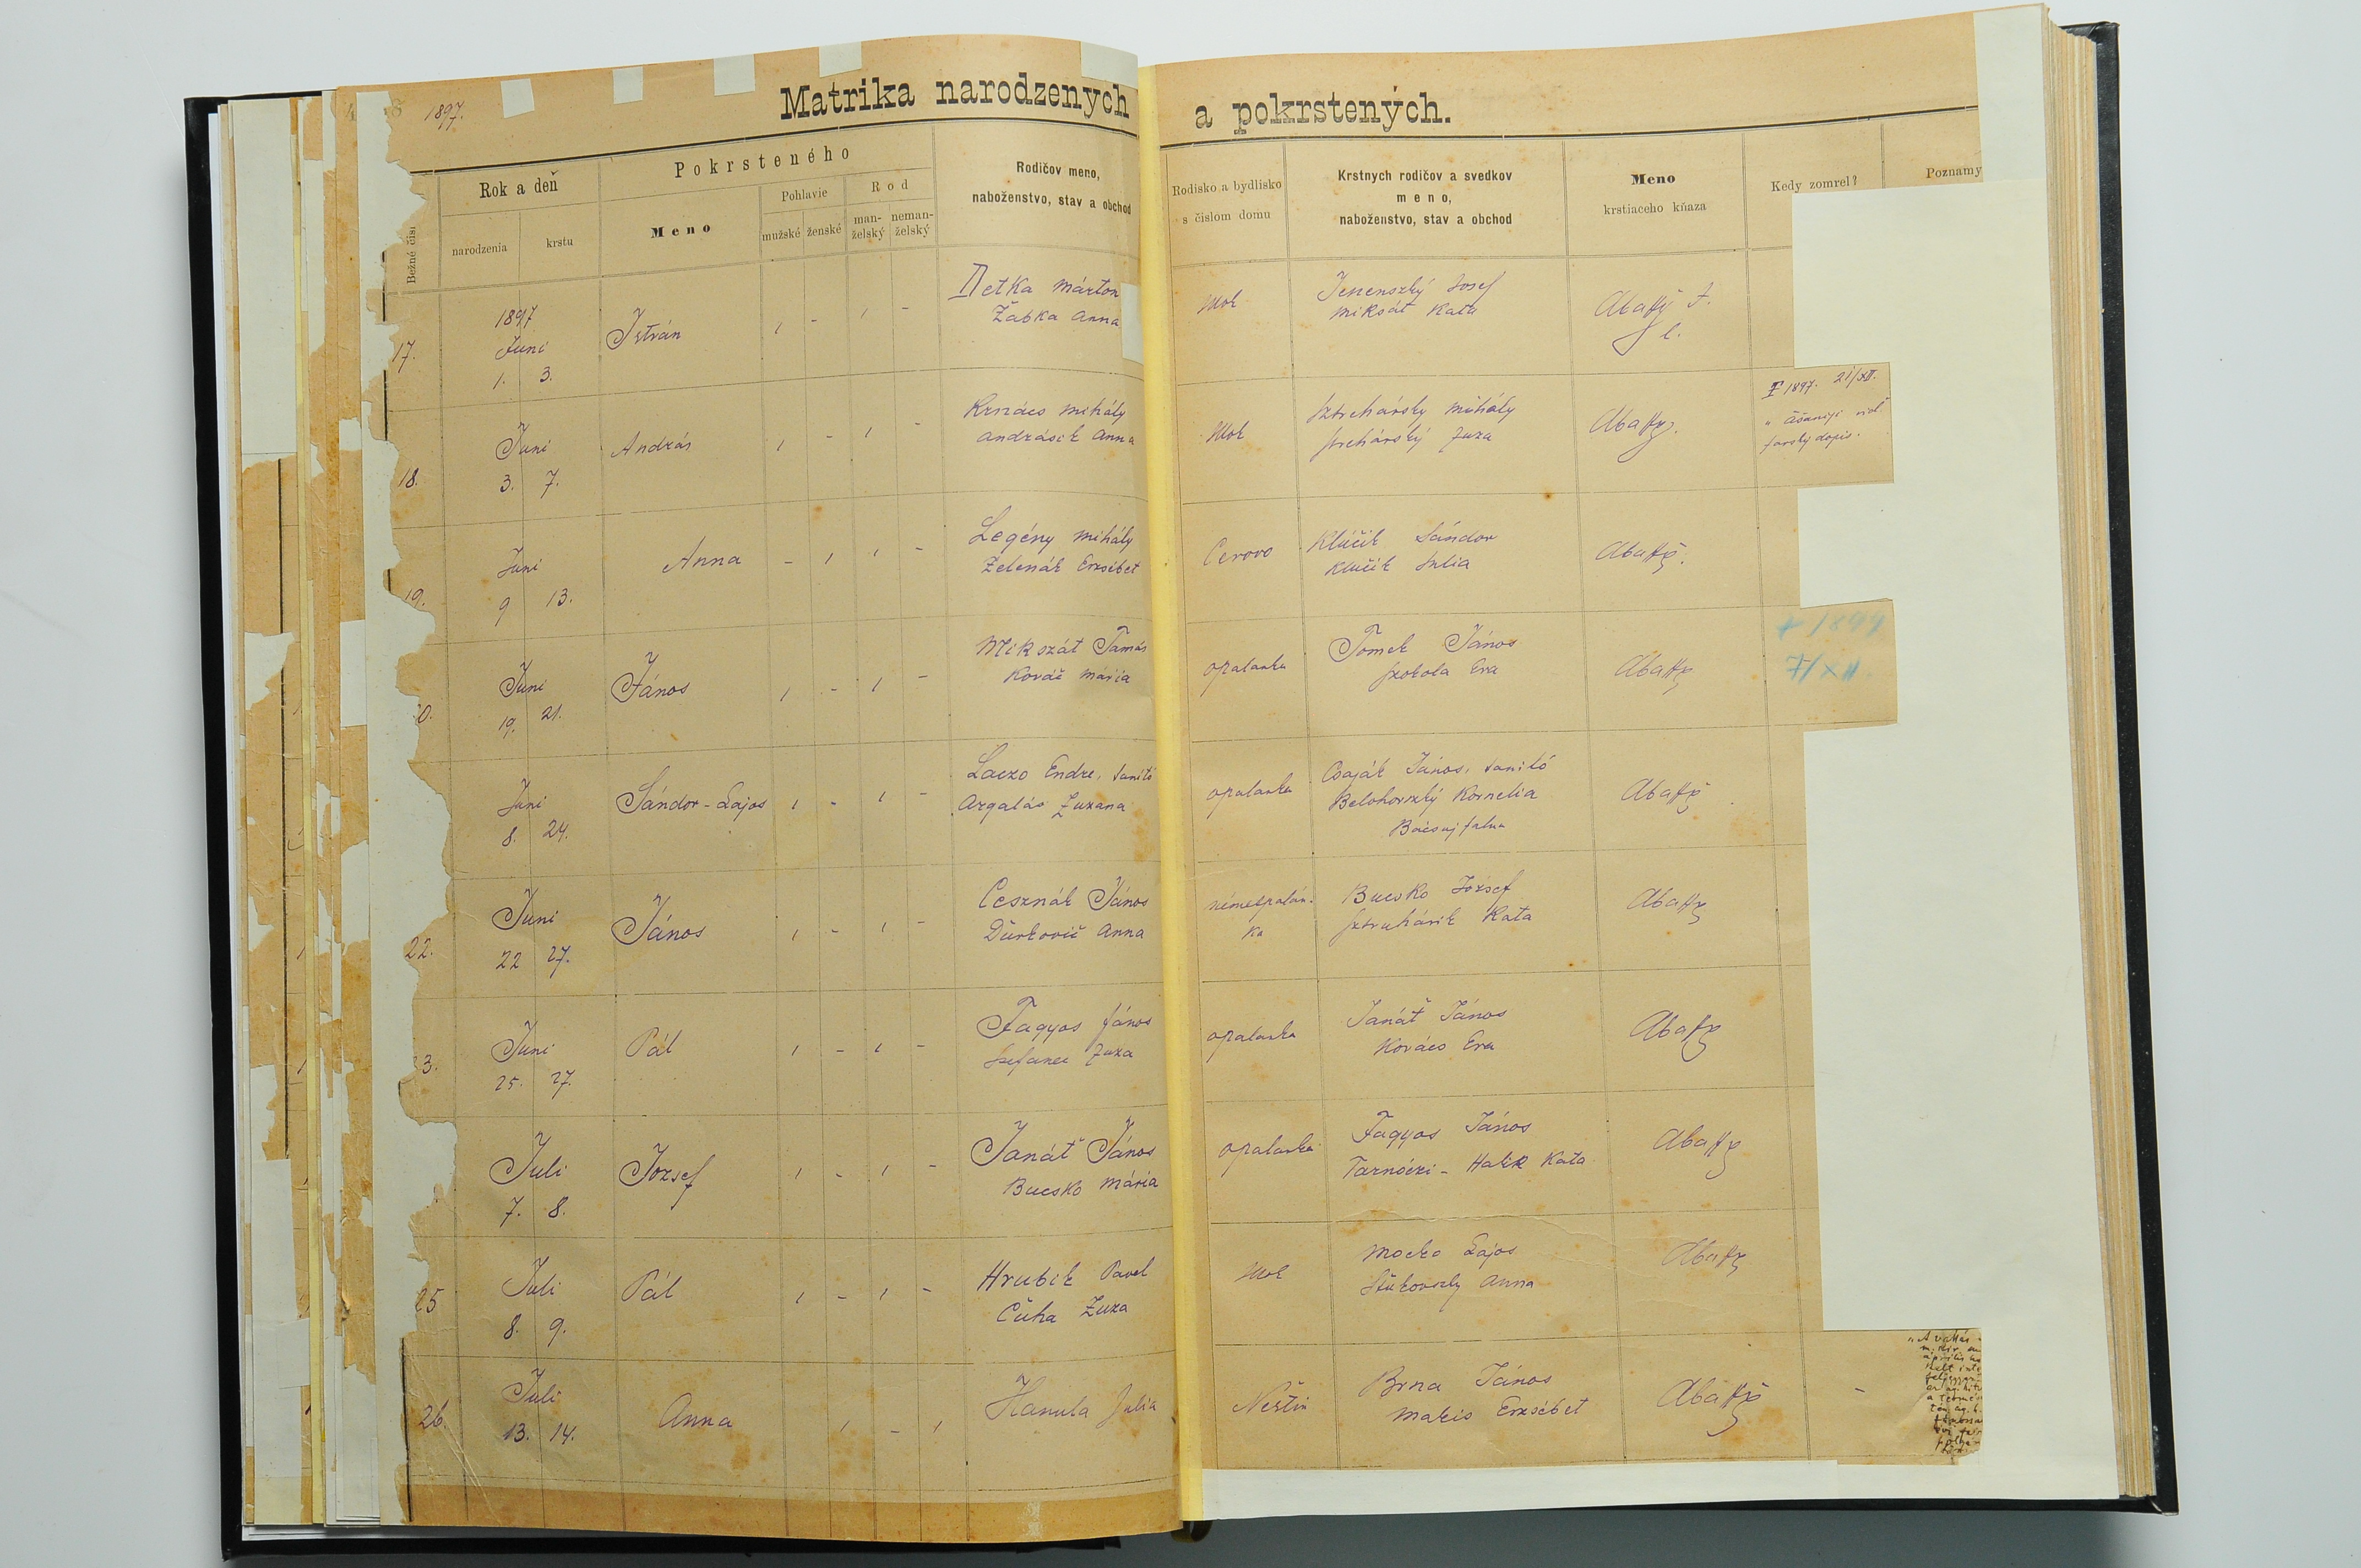 1897.
Matrika narodzenych a pokrstených.
Bežné čís
Rok a deň
narodzenia
krstu
Pokrsteného
Meno
Pohlavie
mužské ženské
Rod
man-želský neman-želský
Rodičov meno,
naboženstvo, stav a obchod
Rodisko a bydlisko
s čislom domu
Krstnych rodičov a svedkov
meno,
naboženstvo, stav a obchod
Meno
krstiaceho kňaza
Kedy zomrel?
Poznamy
17.
1897
Juni
1. 3.
István
Petka Márton
Žabka Anna
Jeszenszký Josef
Mikszát Kata
Abaffy
18.
Juni
3. 7.
András
Krnács Mihály
Andrásik Anna
Sztrehárszky Mihály
Zuza
Abaffy.
1897. 21/XII.
farský dopis.
19.
Juni
9 13.
Anna
Legény Mihály
Zelenák Erzsébet
Cerovo
Klúčik Sándor
Klúčik Julia
Abaffy.
0.
Juni
19. 21.
János
Mikszát Tamás
Kováč Mária
opalanka
Tomek János
Szokola Eva
Abaffy
+ 1899
7/XII.
Juni
8. 24.
Sándor-Lajos
Laczo Endre, tanító
Argalás Zuzana
opalanka
Csaják János, tanító
Belohorszký Kornelia
Bácsujfalu
Abaffy
22.
Juni
22 27.
János
Cesznák János
Ďurkovič Anna
németpalán-
ka
Bucsko József
Sztruhárik Kata
Abaffy
3.
Juni
25. 27.
Pál
Fagyos János
Zuza
opalanka
Janáť János
Kovács Eva
Abaffy
Juli
7. 8.
József
Janáť János
Bucsko Mária
opalanka
Fagyos János
Tarnóczi - Halik Kata
Abaffy
25
Juli
8. 9.
Pál
Hrubik Pavel
Čuha Zuza
Mocko Lajos
Anna
Abaffy
26.
Juli
13. 14.
Anna
Hanula Julia
Neštin
Brna János
Makis Erzsébet
Abaffy